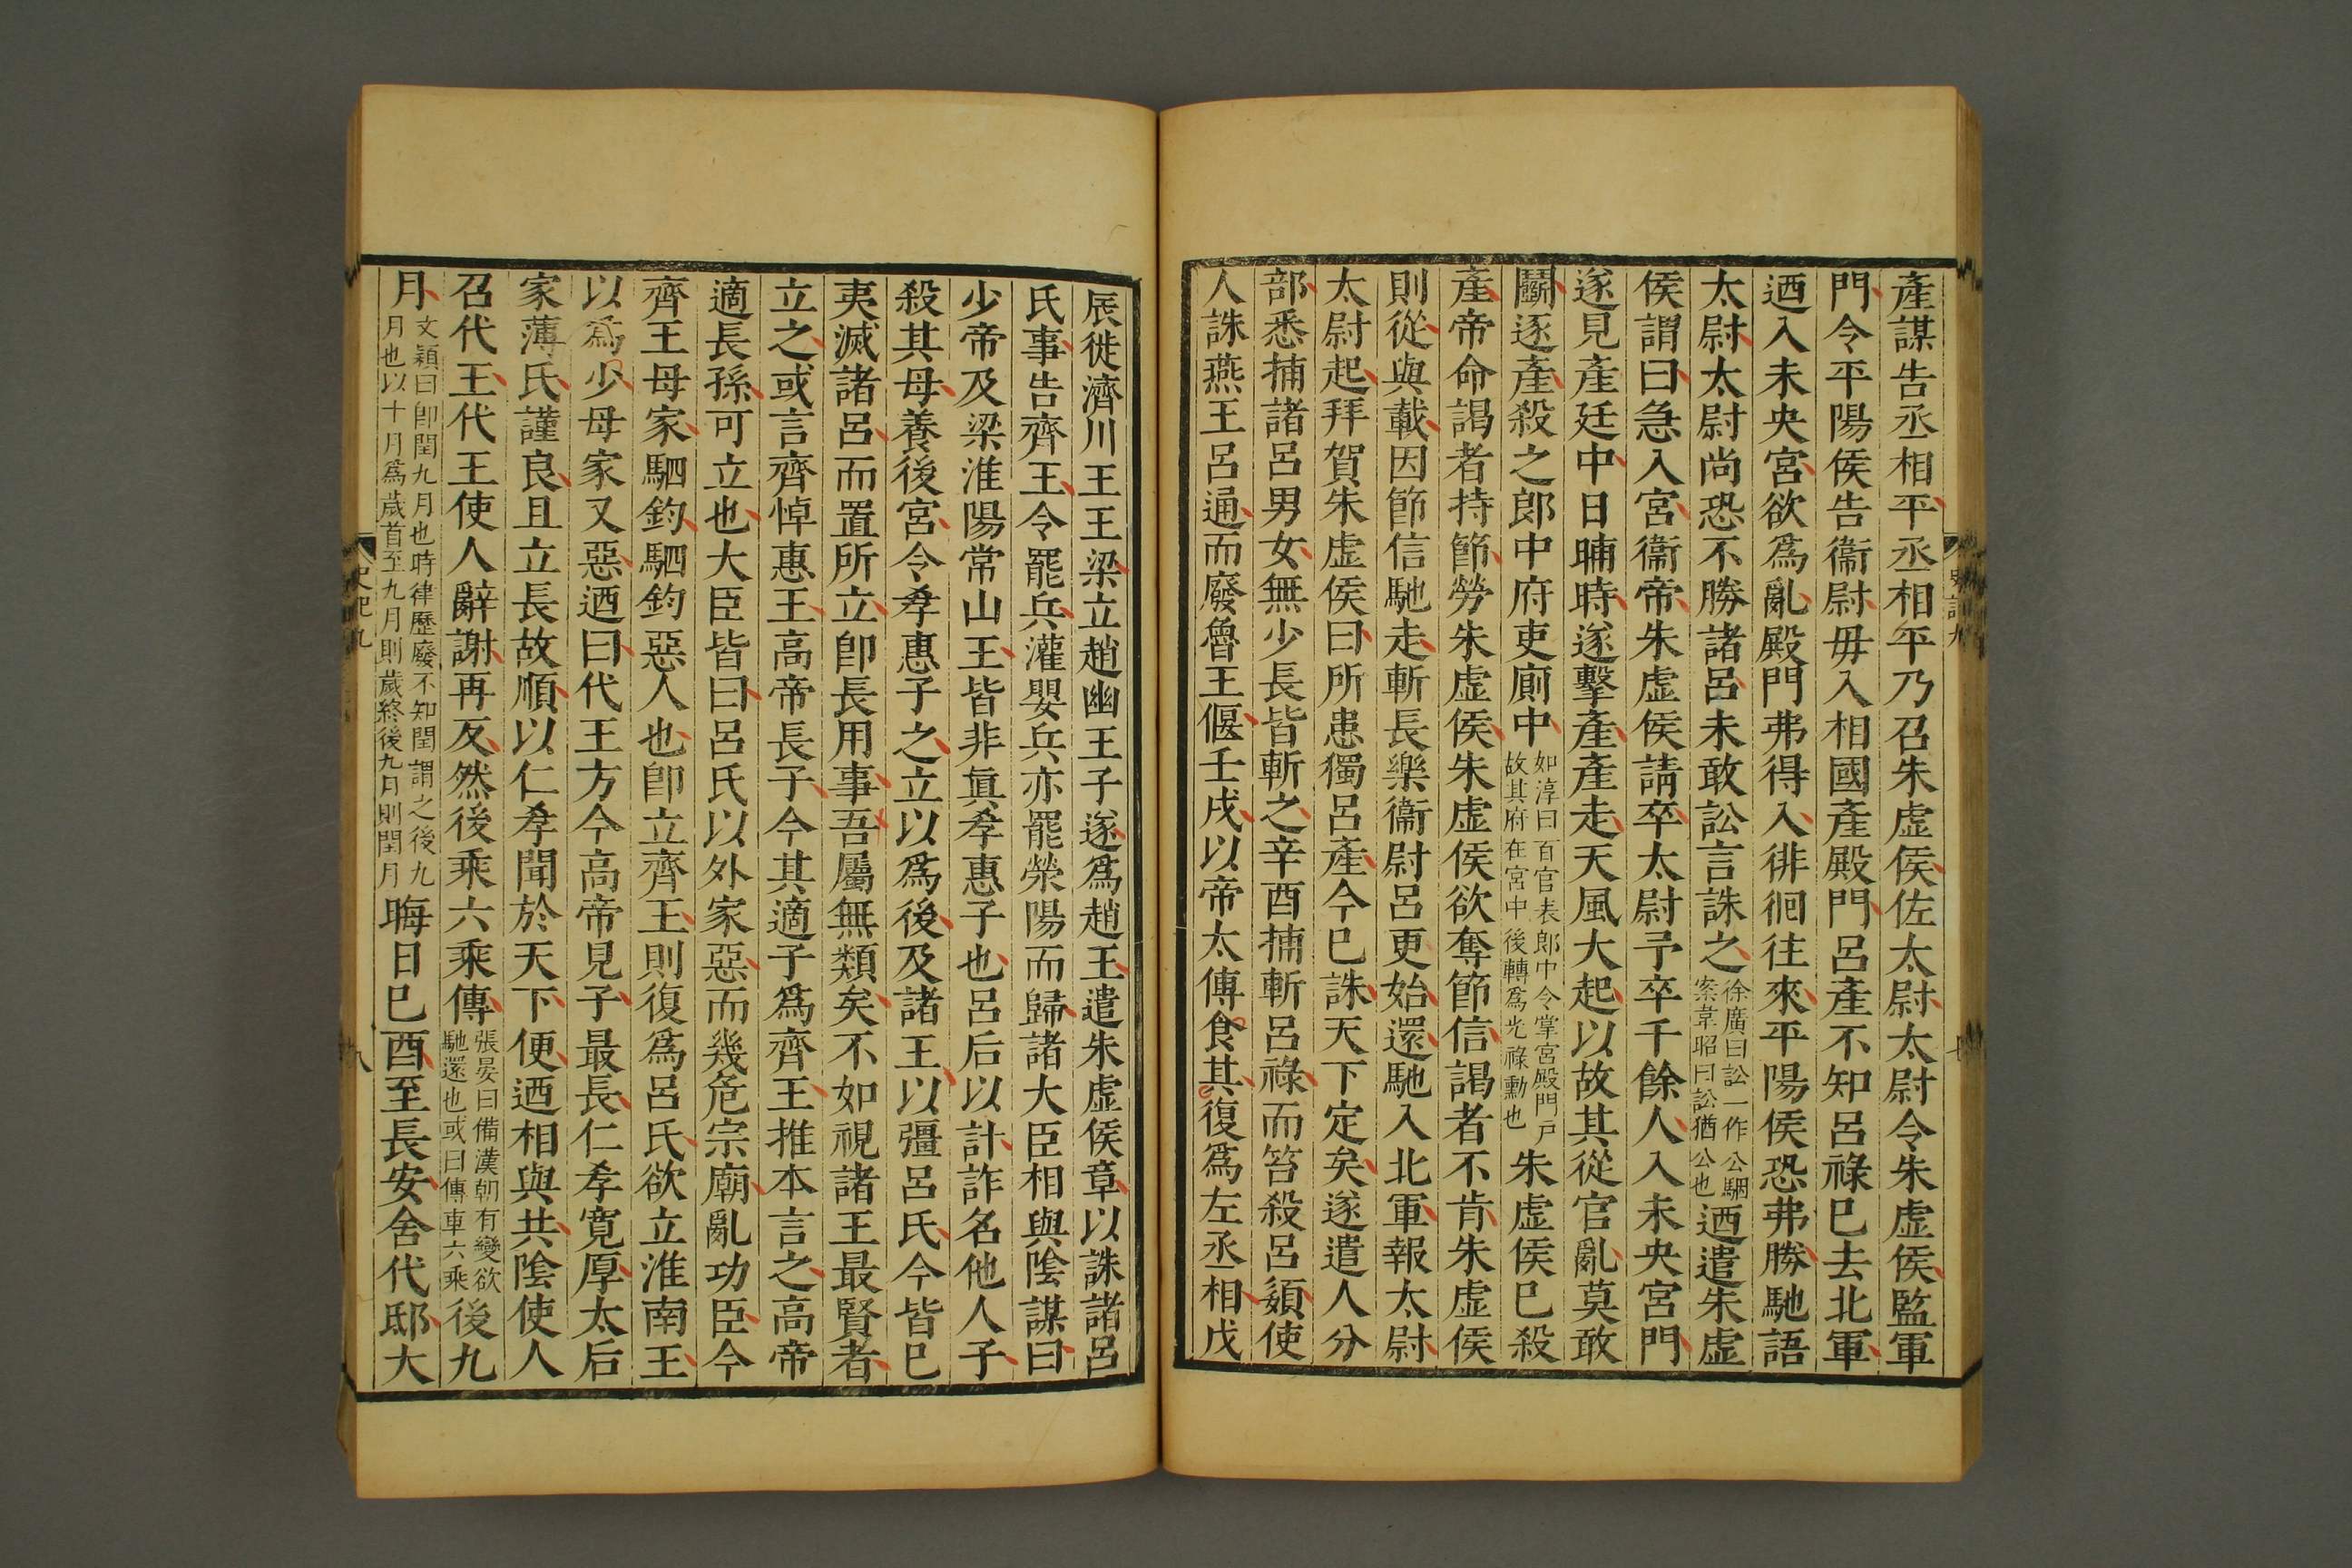 產謀告丞相平丞相平乃召朱虛侯佐太尉太尉令朱虛侯監軍
門令平陽侯告衞尉毋入相國產殿門呂產不知呂祿巳去北軍
迺入未央宮欲爲亂殿門弗得入徘徊往來平陽侯恐弗勝馳語
太尉太尉尚恐不勝諸呂未敢訟言誅之徐廣曰訟一作公駰案韋昭曰訟猶公也迺遣朱虛
侯謂曰急入宮衞帝朱虛侯請卒太尉予卒千餘人入未央宮門
遂見產廷中日晡時遂擊產產走天風大起以故其從官亂莫敢
鬭逐產殺之郎中府吏廁中如淳曰百官表郎中令掌宮殿門戸故其府在宮中後轉爲光祿勳也朱虛侯巳殺
產帝命謁者持節勞朱虛侯朱虛侯欲奪節信謁者不肯朱虛侯
則從與載因節信馳走斬長樂衞尉呂更始還馳入北軍報太尉
太尉起拜賀朱虛侯曰所患獨呂產今巳誅天下定矣遂遣人分
部悉捕諸呂男女無少長皆斬之辛酉捕斬呂祿而笞殺呂嬃使
人誅燕王呂通而廢魯王偃壬戌以帝太傅食其復爲左丞相戊
辰徙濟川王王梁立趙幽王子遂爲趙王遣朱虛侯章以誅諸呂
氏事告齊王令罷兵灌嬰兵亦罷滎陽而歸諸大臣相與陰謀曰
少帝及梁淮陽常山王皆非眞孝惠子也呂后以計詐名他人子
殺其母養後宮令孝惠子之立以爲後及諸王以彊呂氏今皆巳
夷滅諸呂而置所立卽長用事吾屬無類矣不如視諸王最賢者
立之或言齊悼惠王高帝長子今其適子爲齊王推本言之高帝
適長孫可立也大臣皆曰呂氏以外家惡而幾危宗廟亂功臣今
齊王母家駟鈞駟鈞惡人也卽立齊王則復爲呂氏欲立淮南王
以爲少母家又惡迺曰代王方今高帝見子最長仁孝寬厚太后
家薄氏謹良且立長故順以仁孝聞於天下便迺相與共陰使人
召代王代王使人辭謝再反然後乘六乘傳張晏曰備漢朝有變欲馳還也或曰傳車六乘後九
月文穎曰卽閏九月也時律歷廢不知閏謂之後九月也以十月爲歲首至九月則歲終後九月則閏月晦日巳酉至長安舍代邸大
史記九
八